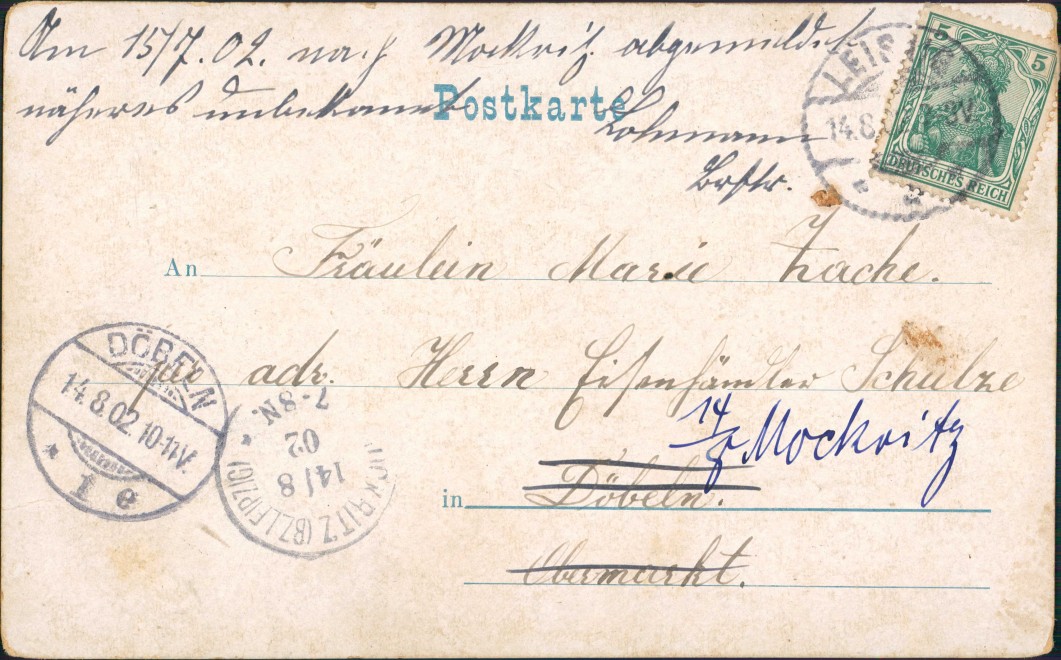 Am 15/7.02. nach Mockritz abgemeldet
näheres unbekannt
Postkarte
Lohmann
Brftr.
5 5
DEUTSCHES REICH
LEIS
14.8.
An Fräulein Marie Zache.
adr. Herrn Eisenhändler Schulze
14/8 Mockritz
in Döbeln.
Obermarkt.
DÖBELN
14.8.02.10-11V.
* 1 e
MOCKRITZ (BZ.LEIPZIG) *
14/8
02
7-8N.